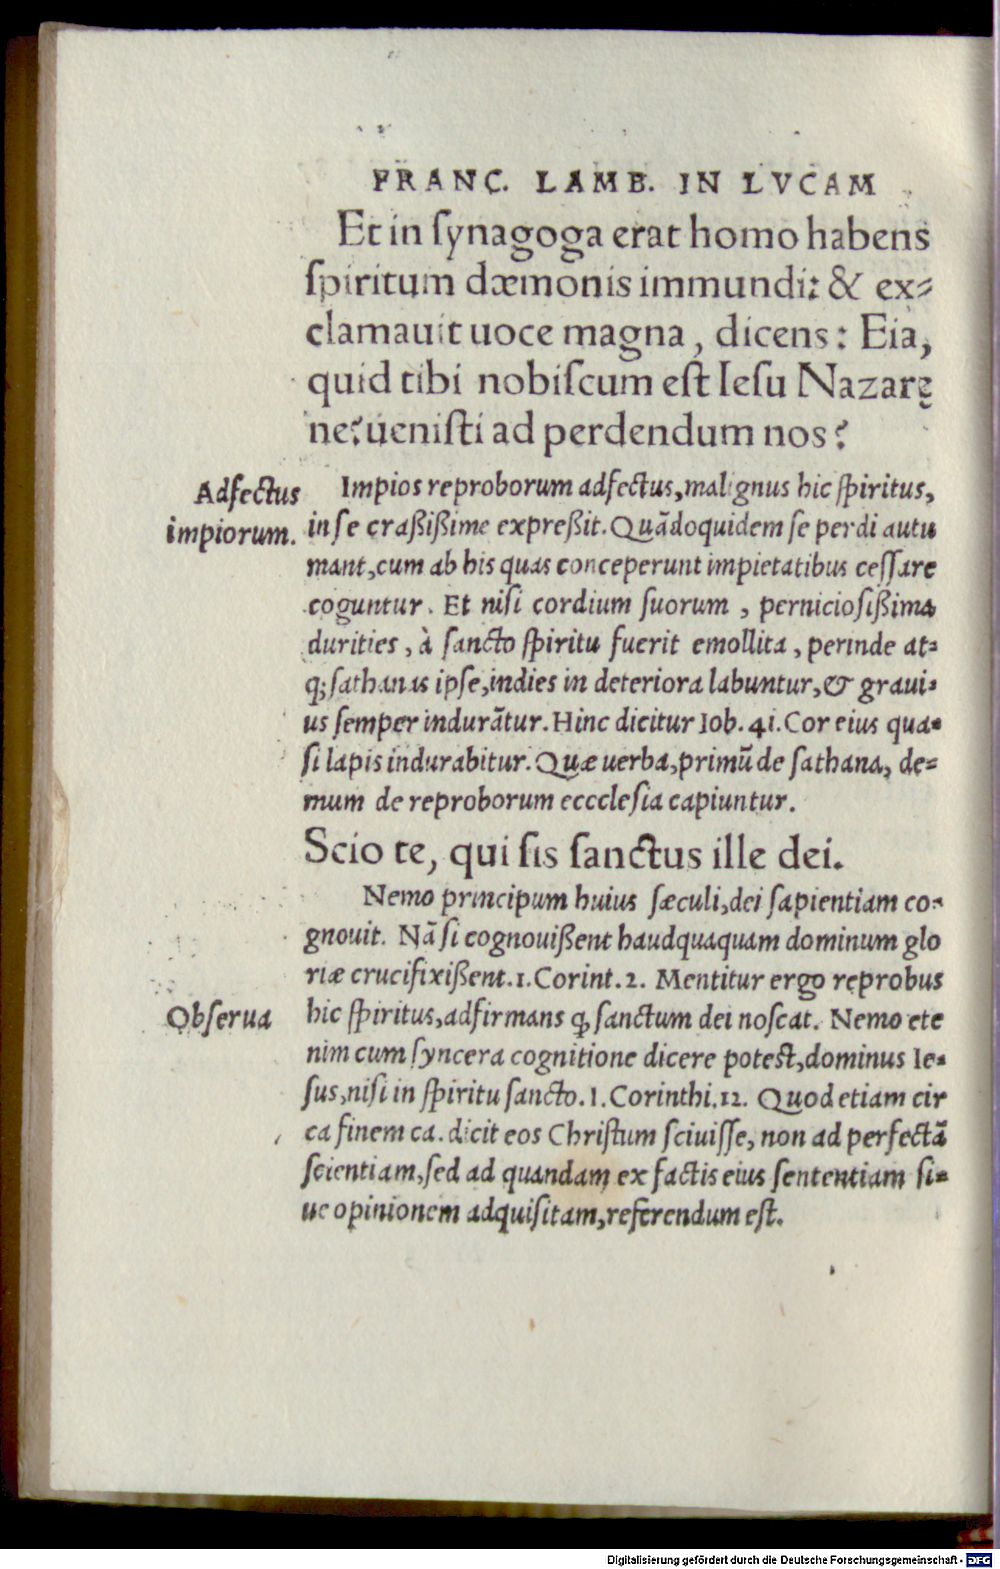 FRANC. LAMB. IN LVCAM
Et in ſynagoga erat homo habens
ſpiritum dæmonis immundi: & ex⸗
clamauit uoce magna, dicens: Eia,
quid tibi nobiſcum eſt Ieſu Nazarę
ne? ueniſti ad perdendum nos?
Adfectus
impiorum.
Impios reproborum adfectus, malignus hic ſpiritus,
in ſe craßißime expreßit. Quãdoquidem ſe perdi autu
mant, cum ab his quas conceperunt impietatibus ceſſare
coguntur. Et niſi cordium ſuorum, pernicioſißima
durities, à ſancto ſpiritu fuerit emollita, perinde at⸗
q; ſathanas ipſe, indies in deteriora labuntur, & graui⸗
us ſemper indurãtur. Hinc dicitur Iob. 41. Cor eius qua⸗
ſi lapis indurabitur. Quæ uerba, primũ de ſathana, de⸗
mum de reproborum eccclesia capiuntur.
Scio te, qui ſis ſanctus ille dei.
Nemo principum huius ſæculi, dei ſapientiam co⸗
gnouit. Nã ſi cognouißent haudquaquam dominum glo
riæ crucifixißent. 1. Corint. 2. Mentitur ergo reprobus
Obſerua
hic ſpiritus, adfirmans ꝙ ſanctum dei noſcat. Nemo ete
nim cum ſyncera cognitione dicere poteſt, dominus Ie⸗
ſus, niſi in ſpiritu ſancto. 1. Corinthi. 12. Quod etiam cir
ca finem ca. dicit eos Chriſtum ſciuiſſe, non ad perfectã
ſcientiam, ſed ad quandam ex factis eius ſententiam ſi⸗
ue opinionem adquiſitam, referendum eſt.
Digitalisierung gefördert durch die Deutsche Forschungsgemeinschaft - DFG